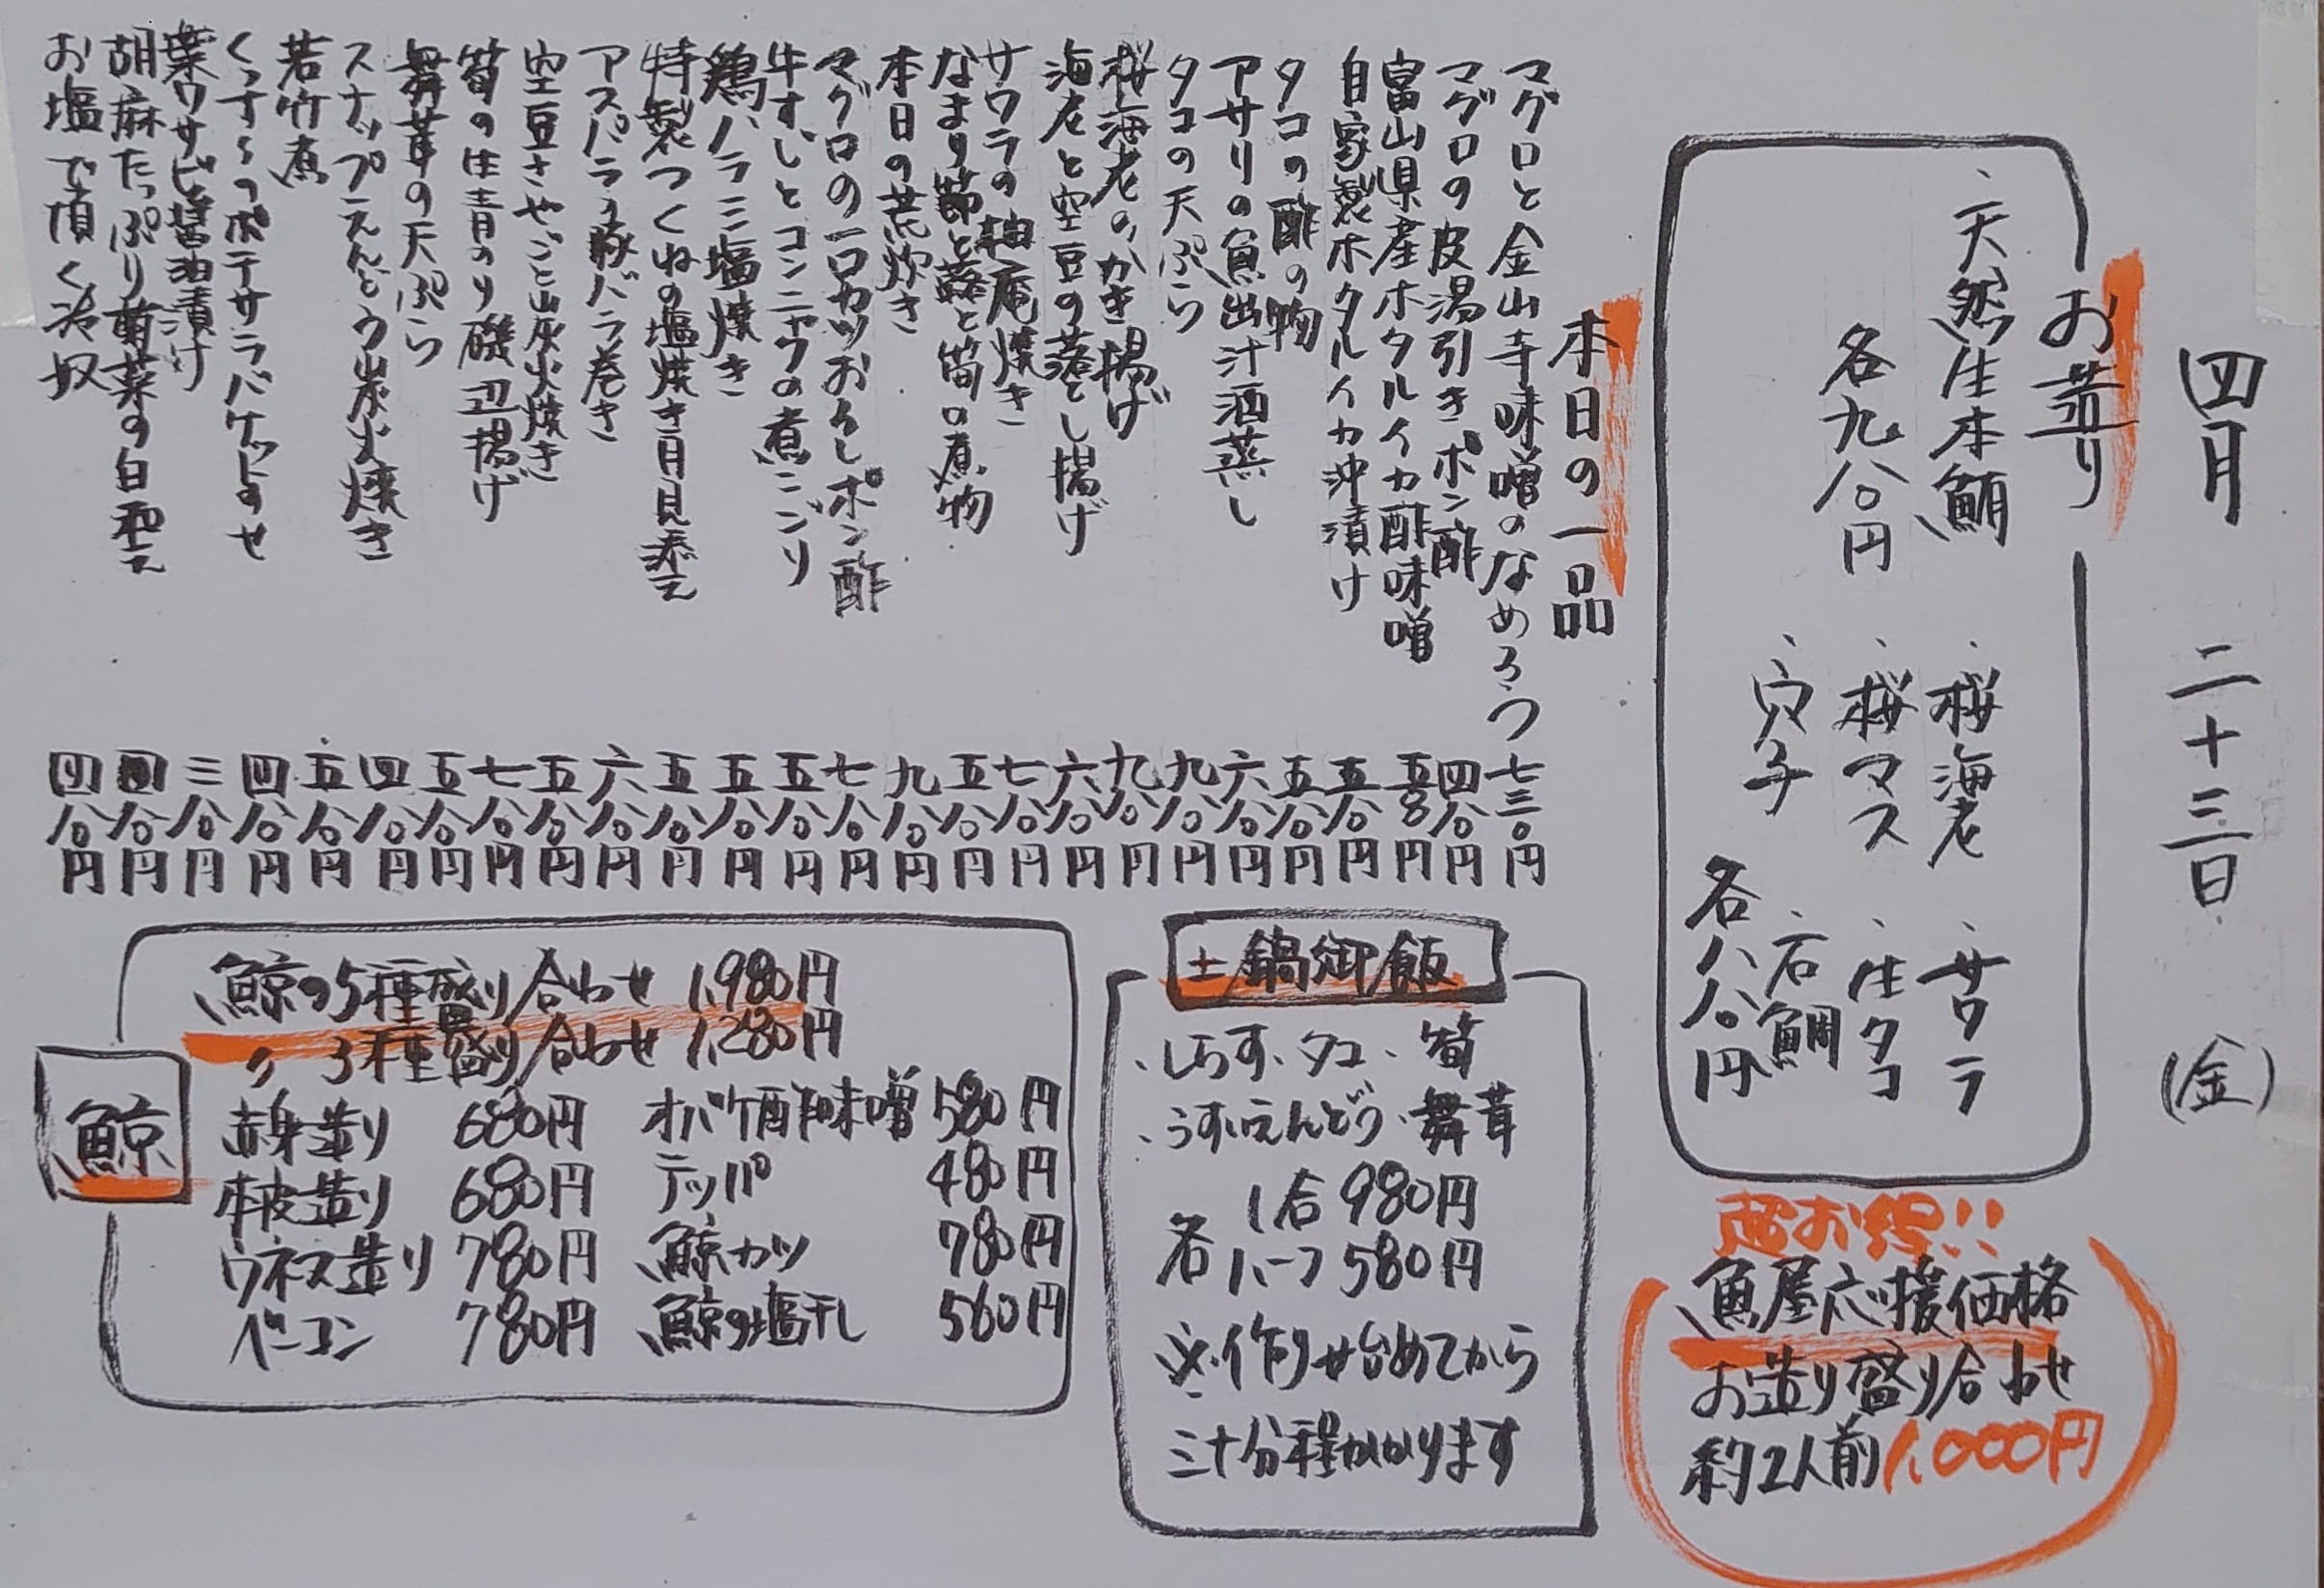 四月 二十三日 (金)
お造り
・天然生本鮪
各九八〇円
・桜海老 ・サワラ
・桜マス ・生タコ
・穴子 ・石鯛
各八八〇円
超お得!!
魚屋応援価格
お造り盛り合わせ
約2人前1,000円
本日の一品
マグロと金山寺味噌のなめろう 七三〇円
マグロの皮湯引きポン酢 四八〇円
富山県産ホタルイカ酢味噌 五八〇円
自家製ホタルイカ沖漬け 五八〇円
タコの酢の物 五八〇円
アサリの魚出汁酒蒸し 六八〇円
タコの天ぷら 九八〇円
桜海老のかき揚げ 九八〇円
海老と空豆の落とし揚げ 六八〇円
サワラの柚庵焼き 七八〇円
なまり節と蕗と筍の煮物 五八〇円
本日の荒炊き 九八〇円
マグロの一口カツおろしポン酢 七八〇円
牛すじとコンニャクの煮こごり 五八〇円
鶏ハラミ塩焼き 五八〇円
特製つくねの塩焼き月見添え 五八〇円
アスパラの豚バラ巻き 六八〇円
空豆さやごと炭火焼き 五八〇円
筍の生青のり磯辺揚げ 七八〇円
舞茸の天ぷら 五八〇円
スナップえんどう炭火焼き 四八〇円
若竹煮 五八〇円
くんすけのポテサラバケットのせ 四八〇円
葉ワサビ醤油漬け 三八〇円
胡麻たっぷり菊菜の白和え 四八〇円
お塩で頂く冷奴 四八〇円
土鍋御飯
・しらす・タコ・筍
・うすいえんどう・舞茸
各 1合 980円
ハーフ 580円
※作り始めてから
三十分程かかります
鯨
鯨の5種盛り合わせ 1,980円
〃 3種盛り合わせ 1,280円
赤身造り 680円 オバケ酢味噌 580円
本皮造り 680円 テッパ 480円
ウネス造り 780円 鯨カツ 780円
ベーコン 780円 鯨の塩干し 560円